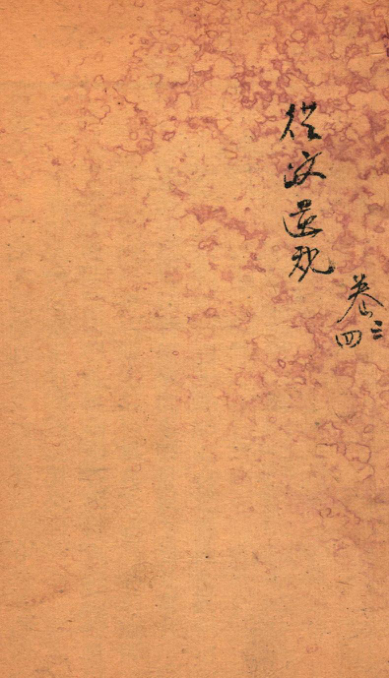 從政遺規
卷三四